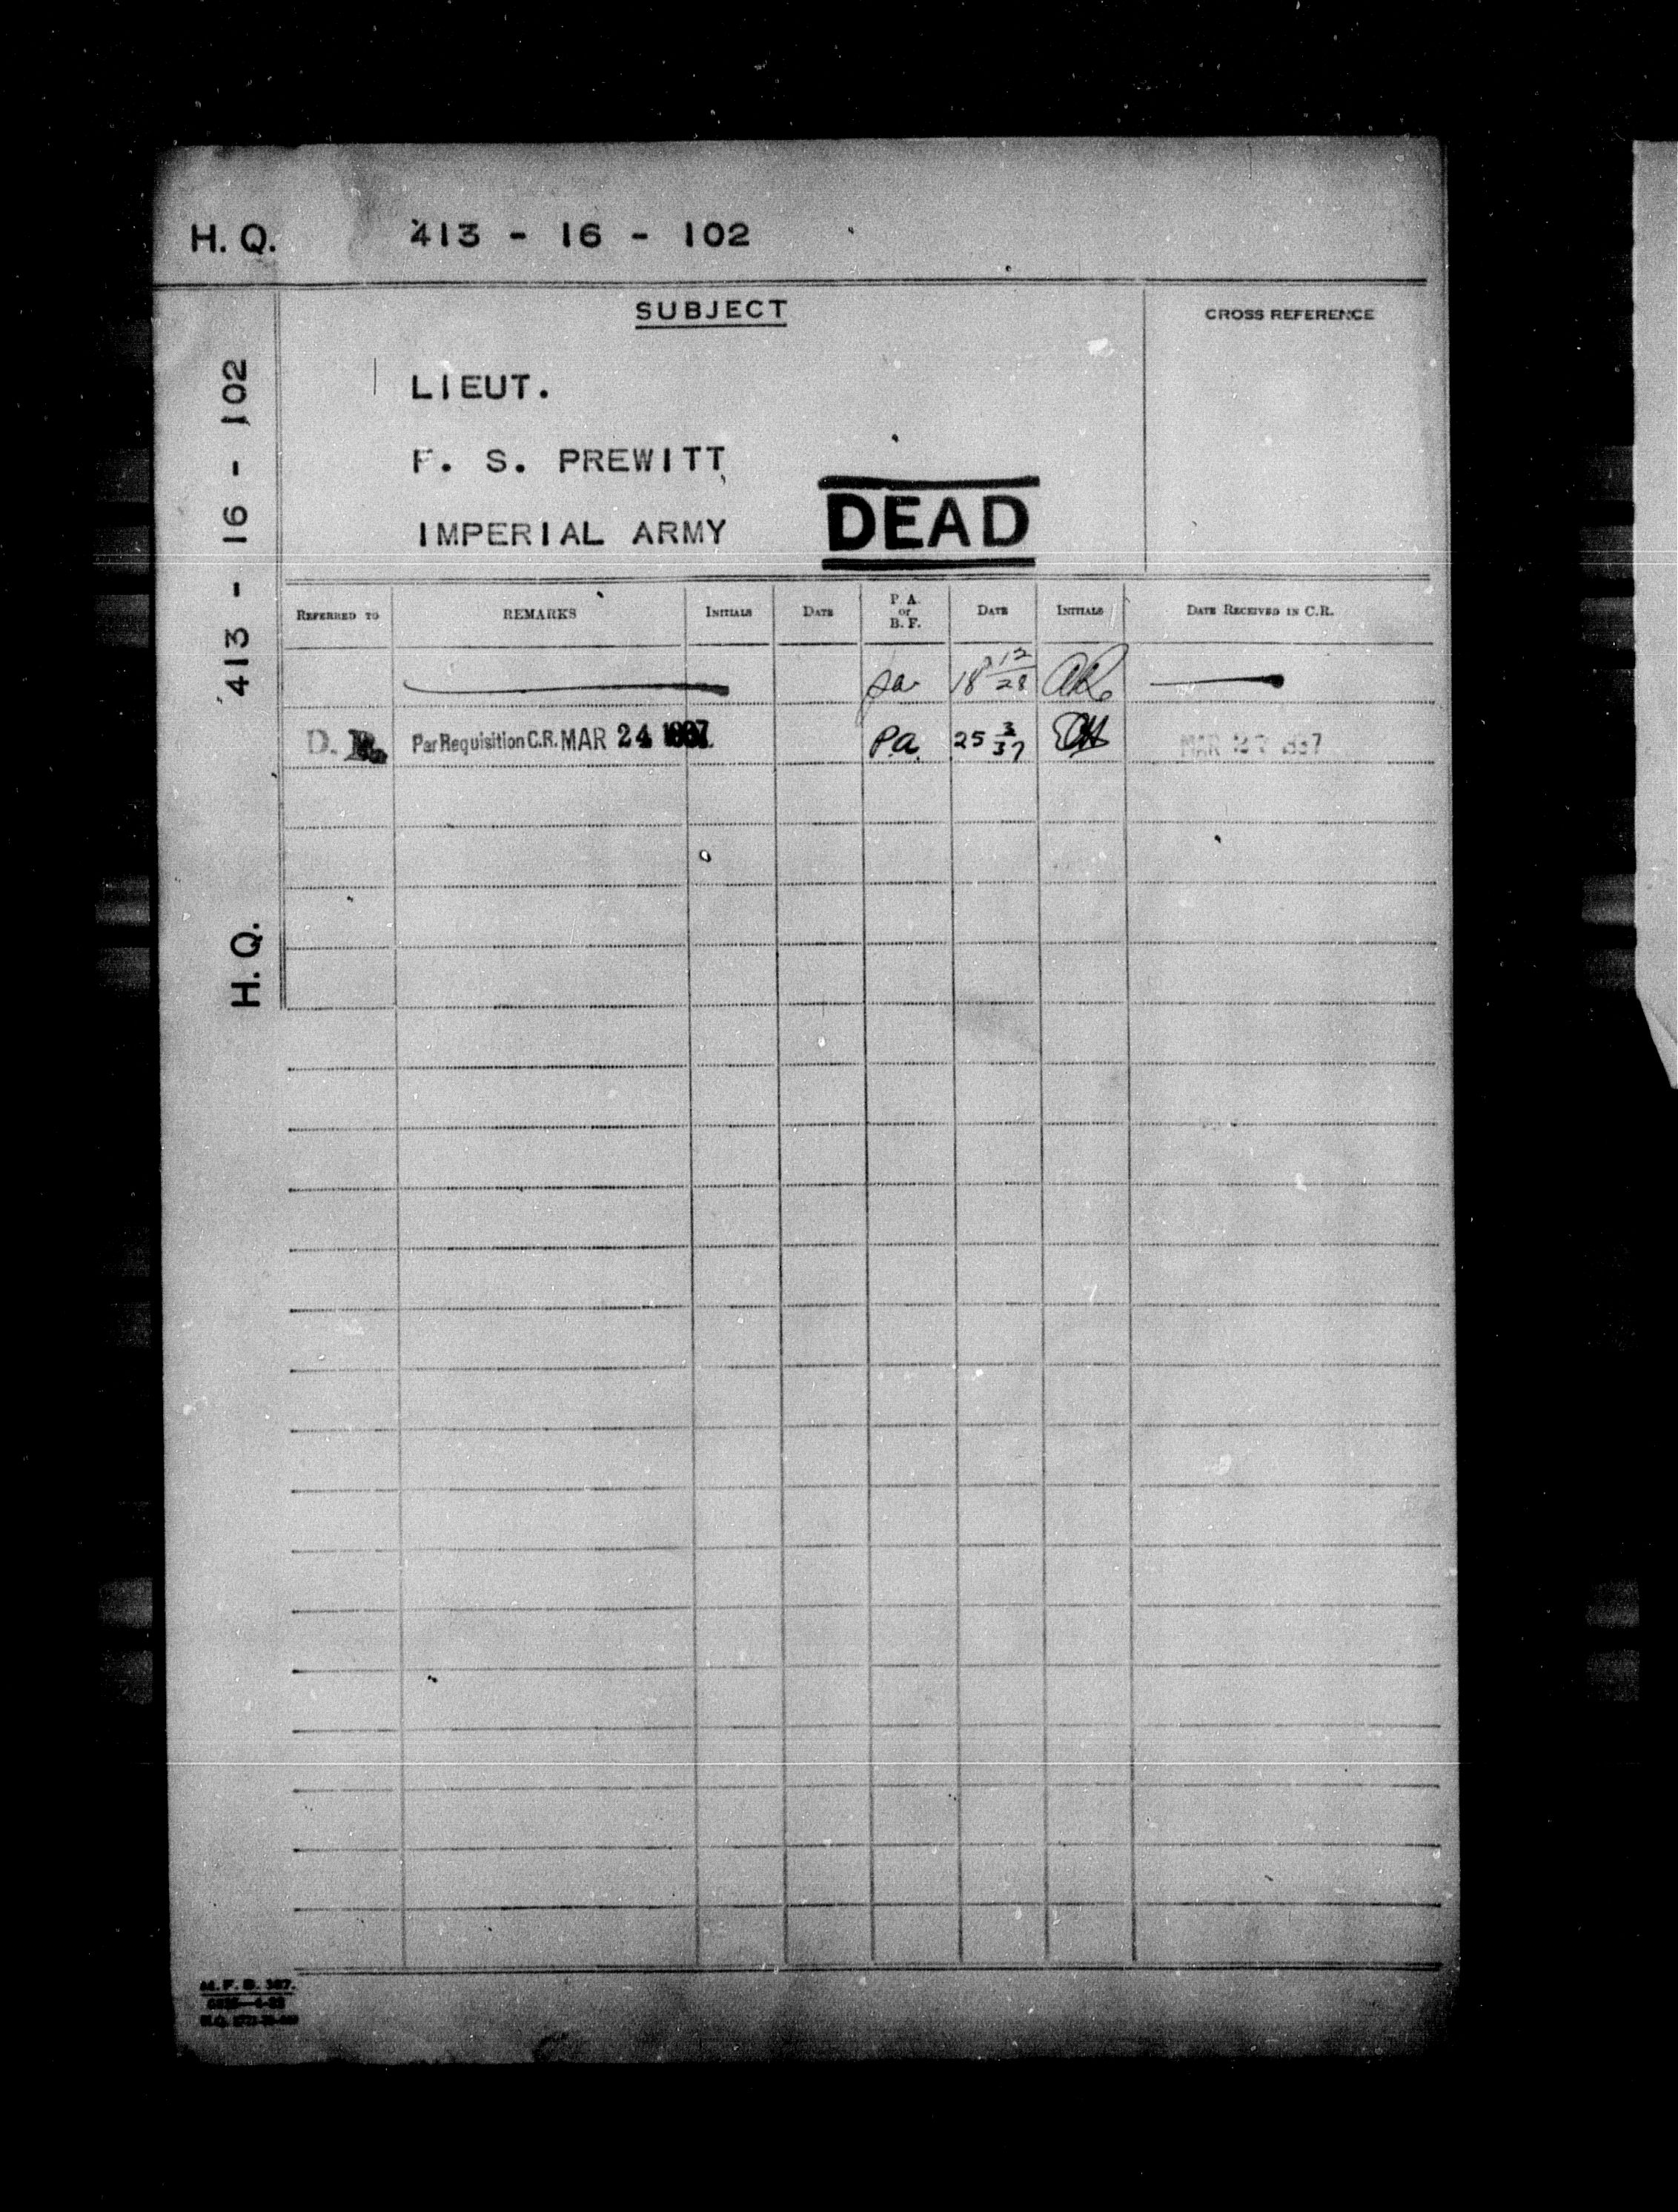 H. Q. 413 - 16 - 102
SUBJECT
CROSS REFERENCE
LIEUT.
F. S. PREWITT
IMPERIAL ARMY
DEAD
H. Q. 413 - 16 - 102
REFERRED TO REMARKS INITIALS DATE P. A. or B. F. DATE INITIALS DATE RECEIVED IN C.R.
pa 18 12/28
D. Per Requisition C.R. MAR 24 1937 P.a. 25 3/37 MAR 1937
M. F. B. 367.